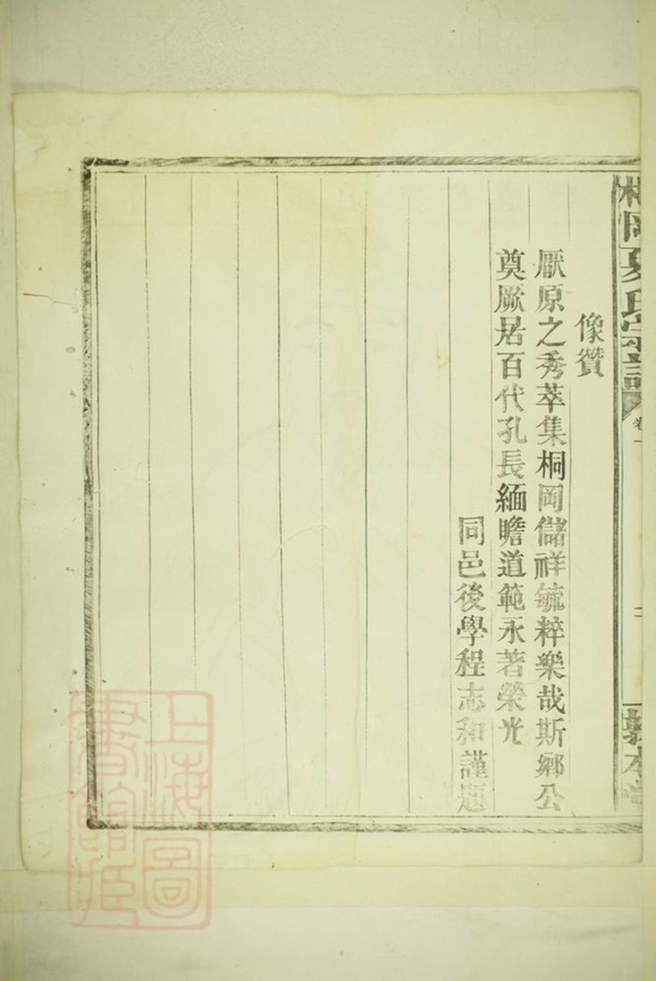 桐岡夏氏宗譜
卷一
二
敦本堂
像贊
厭原之秀萃集桐岡儲祥毓粹樂哉斯鄉公
奠厥居百代孔長緬瞻道範永著榮光
同邑後學程志和謹題
上海圖
書館藏